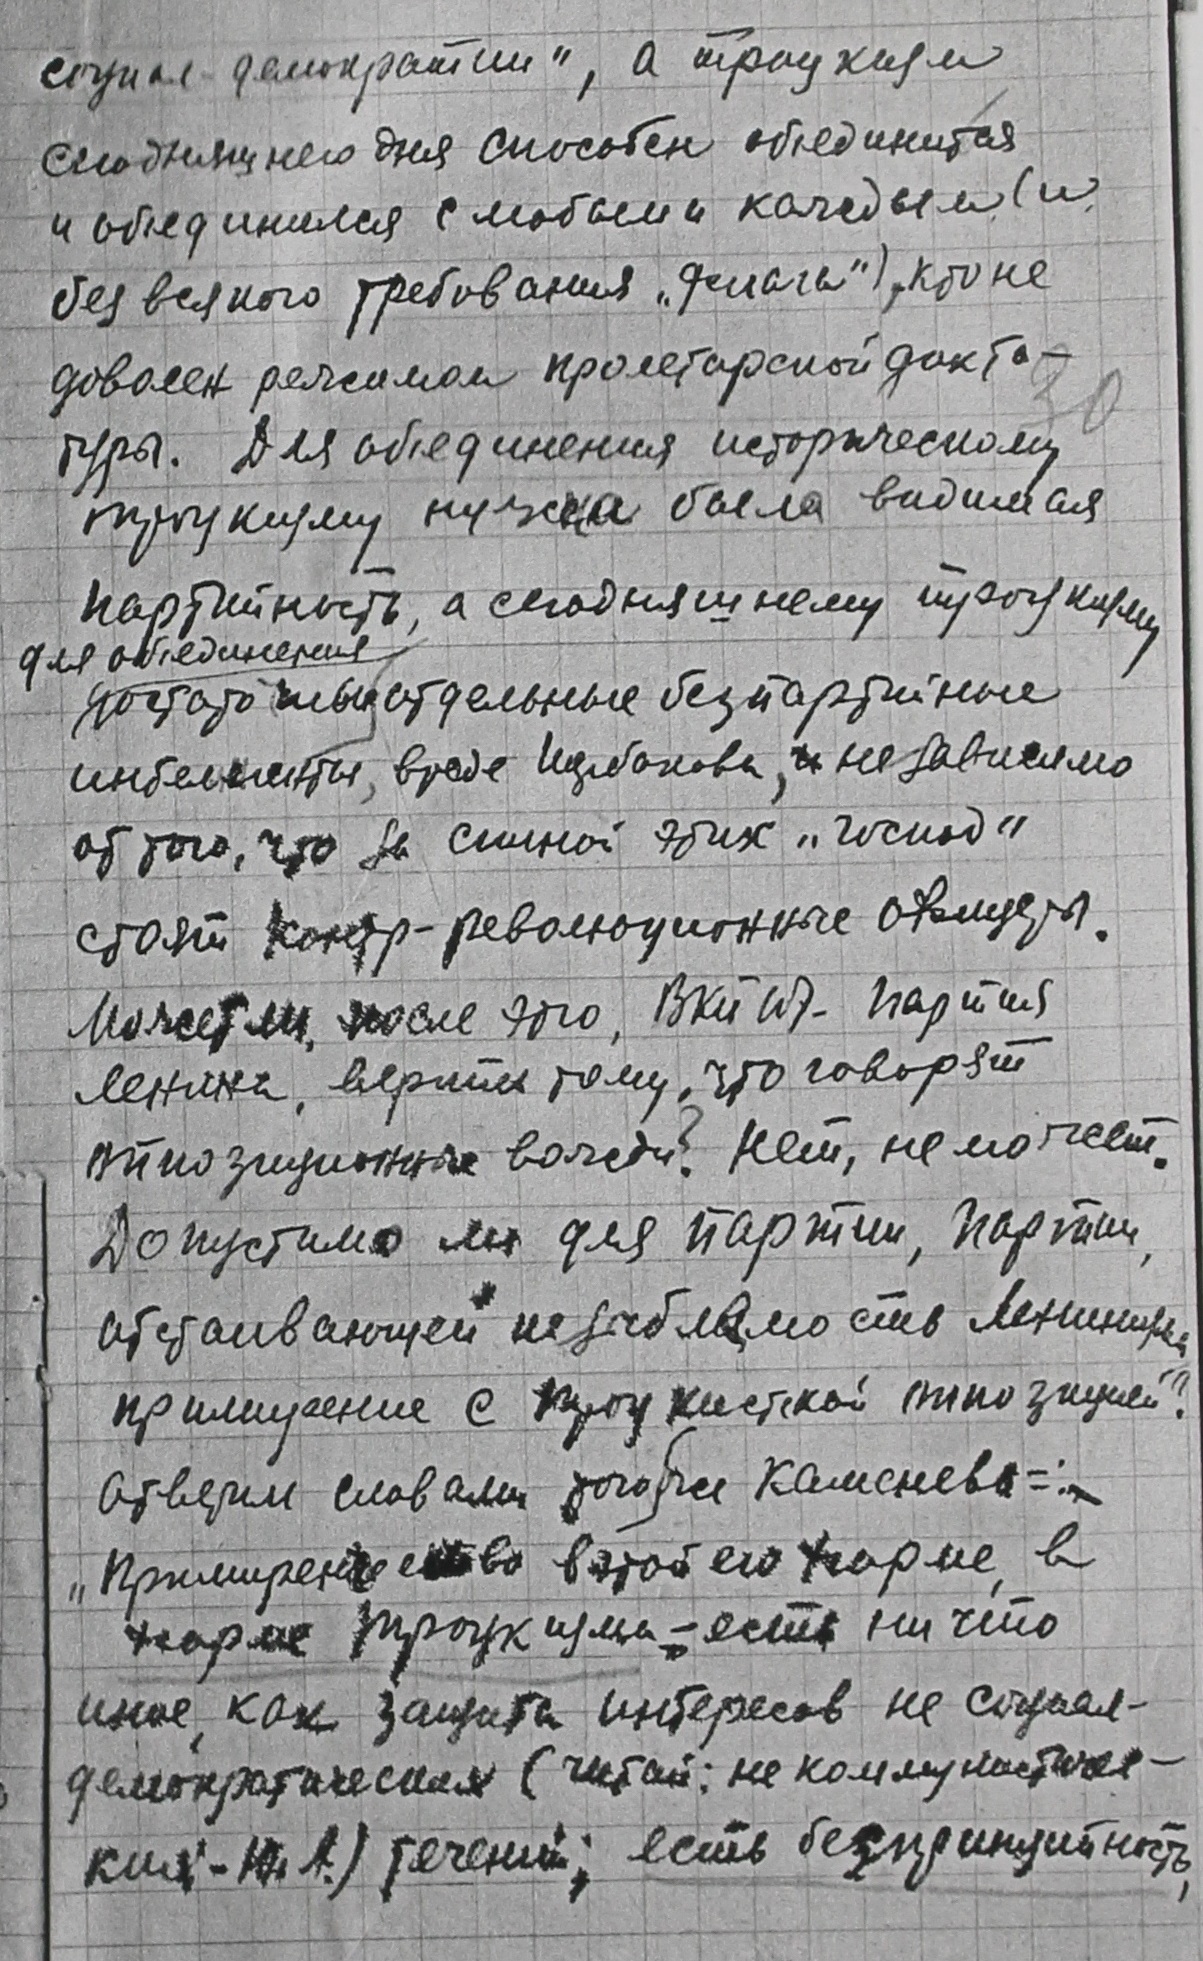 социал-демократии", а троцкизм
сегодняшнего дня способен объединится
и объединился с любым и каждым (и
без всякого требования „флага"), кто не
доволен режимом пролетарской дикта-
30
туры. Для объединения историческому
троцкизму нужна была видимая
партийность, а сегодняшнему троцкизму
для объединения
достаточны отдельные безпартийные
интеленты, вроде Щербакова, и независимо
от того, что за спиной этих „господ"
стоят контр-революционные офицеры.
Может ли, после этого, ВКП(б) - партия
Ленина, верить тому, что говорят
оппозиционные вожди? Нет, не может.
Допустимо ли для партии, партии,
отстаивающей незыблемость Ленинизма
примирение с троцкисткой оппозицией?
Ответим словами того же Каменева:
„Примиренчество в этой его форме, в
форме троцкизма - есть ни что
иное, как защита интересов не социал-
демократических (читай: не коммунистичес-
ких - Н.А.) течений; есть безпринципность,